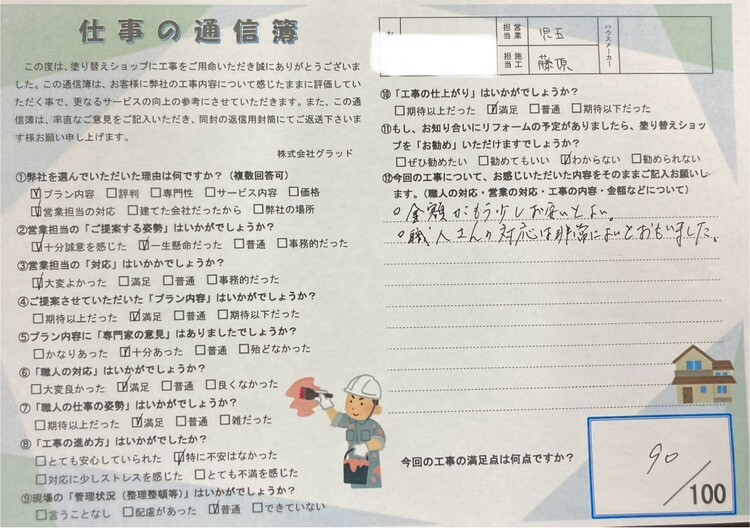 仕事の通信簿
この度は、塗り替えショップに工事をご用命いただき誠にありがとうございま
した。この通信簿は、お客様に弊社の工事内容について感じたままに評価していた
だく事で、更なるサービスの向上の参考にさせていただきます。また、この通
信簿は、率直なご意見をご記入いただき、同封の返信用封筒にてご返送下さいま
す様お願い申し上げます。
株式会社グラッド
①弊社を選んでいただいた理由は何ですか?(複数回答可)
☑プラン内容 □評判 □専門性 □サービス内容 □価格
☑営業担当の対応 □建てた会社だったから □弊社の場所
②営業担当の「ご提案する姿勢」はいかがでしょうか?
☑十分誠意を感じた ☑一生懸命だった □普通 □事務的だった
③営業担当の「対応」はいかがでしょうか?
☑大変よかった □満足 □普通 □事務的だった
④ご提案させていただいた「プラン内容」はいかがでしょうか?
□期待以上だった ☑満足 □普通 □期待以下だった
⑤プラン内容に「専門家の意見」はありましたでしょうか?
□かなりあった ☑十分あった □普通 □殆どなかった
⑥「職人の対応」はいかがでしょうか?
□大変良かった ☑満足 □普通 □良くなかった
⑦「職人の仕事の姿勢」はいかがでしょうか?
□期待以上だった ☑満足 □普通 □雑だった
⑧「工事の進め方」はいかがでしたか?
□とても安心していられた ☑特に不安はなかった
□対応に少しストレスを感じた □とても不満を感じた
⑨現場の「管理状況(整理整頓等)」はいかがでしょうか?
□言うことなし □配慮があった ☑普通 □できていない
営業担当 児玉
施工担当 藤原
ハウスメーカー
⑩「工事の仕上がり」はいかがでしょうか?
□期待以上だった ☑満足 □普通 □期待以下だった
⑪もし、お知り合いにリフォームの予定がありましたら、塗り替えショッ
プを「お勧め」いただけますでしょうか?
□ぜひ勧めたい □勧めてもいい ☑わからない □勧められない
⑫今回の工事について、お感じいただいた内容をそのままご記入お願いし
ます。(職人の対応・営業の対応・工事の内容・金額などについて)
○金額がもう少しお安いとよい。
○職人さんの対応は非常によいとおもいました。
今回の工事の満足点は何点ですか?
90/100